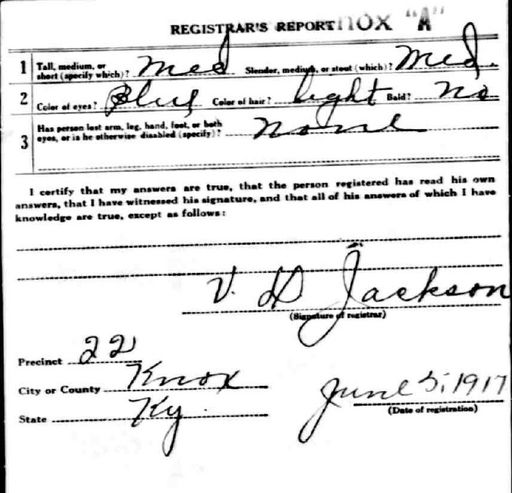 REGISTRAR'S REPORT NOX "A"
1 Tall, medium, or short (specify which)? Med Slender, medium, or stout (which)? Med.
2 Color of eyes? Blue Color of hair? Light Bald? No
3 Has person lost arm, leg, hand, foot, or both eyes, or is he otherwise disabled (specify)? None
I certify that my answers are true, that the person registered has read his own
answers, that I have witnessed his signature, and that all of his answers of which I have
knowledge are true, except as follows:
V. D Jackson
(Signature of registrar)
Precinct 22
City or County Knox
State Ky.
June 5, 1917
(Date of registration)